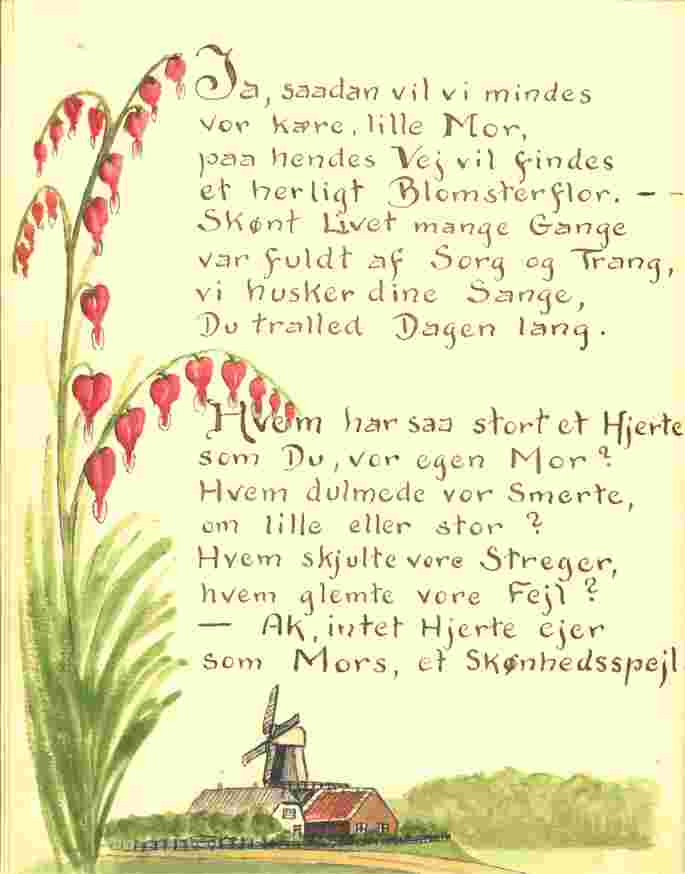 Ja, saadan vil vi mindes
vor kære, lille Mor,
paa hendes Vej vil findes
et herligt Blomsterflor. — -
Skønt Livet mange Gange
var fuldt af Sorg og Trang,
vi husker dine Sange,
Du tralled Dagen lang.
Hvem har saa stort et Hjerte
som Du, vor egen Mor?
Hvem dulmede vor Smerte,
om lille eller stor?
Hvem skjulte vore Streger,
hvem glemte vore Fejl?
— Ak, intet Hjerte ejer
som Mors, et Skønhedsspejl.